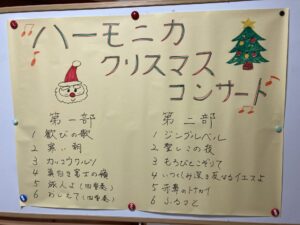 ハーモニカ
クリスマス
コンサート
第一部
1 歓びの歌
2
3 カッコウワルツ
4
5 旅人よ(四重奏)
6 わしたて(四重奏)
第二部
1 ジングルベル
2 聖しこの夜
3 もろびとこぞりて
4 いつくしみ深き友なるイエスよ
5 赤鼻のトナカイ
6 ふるさと